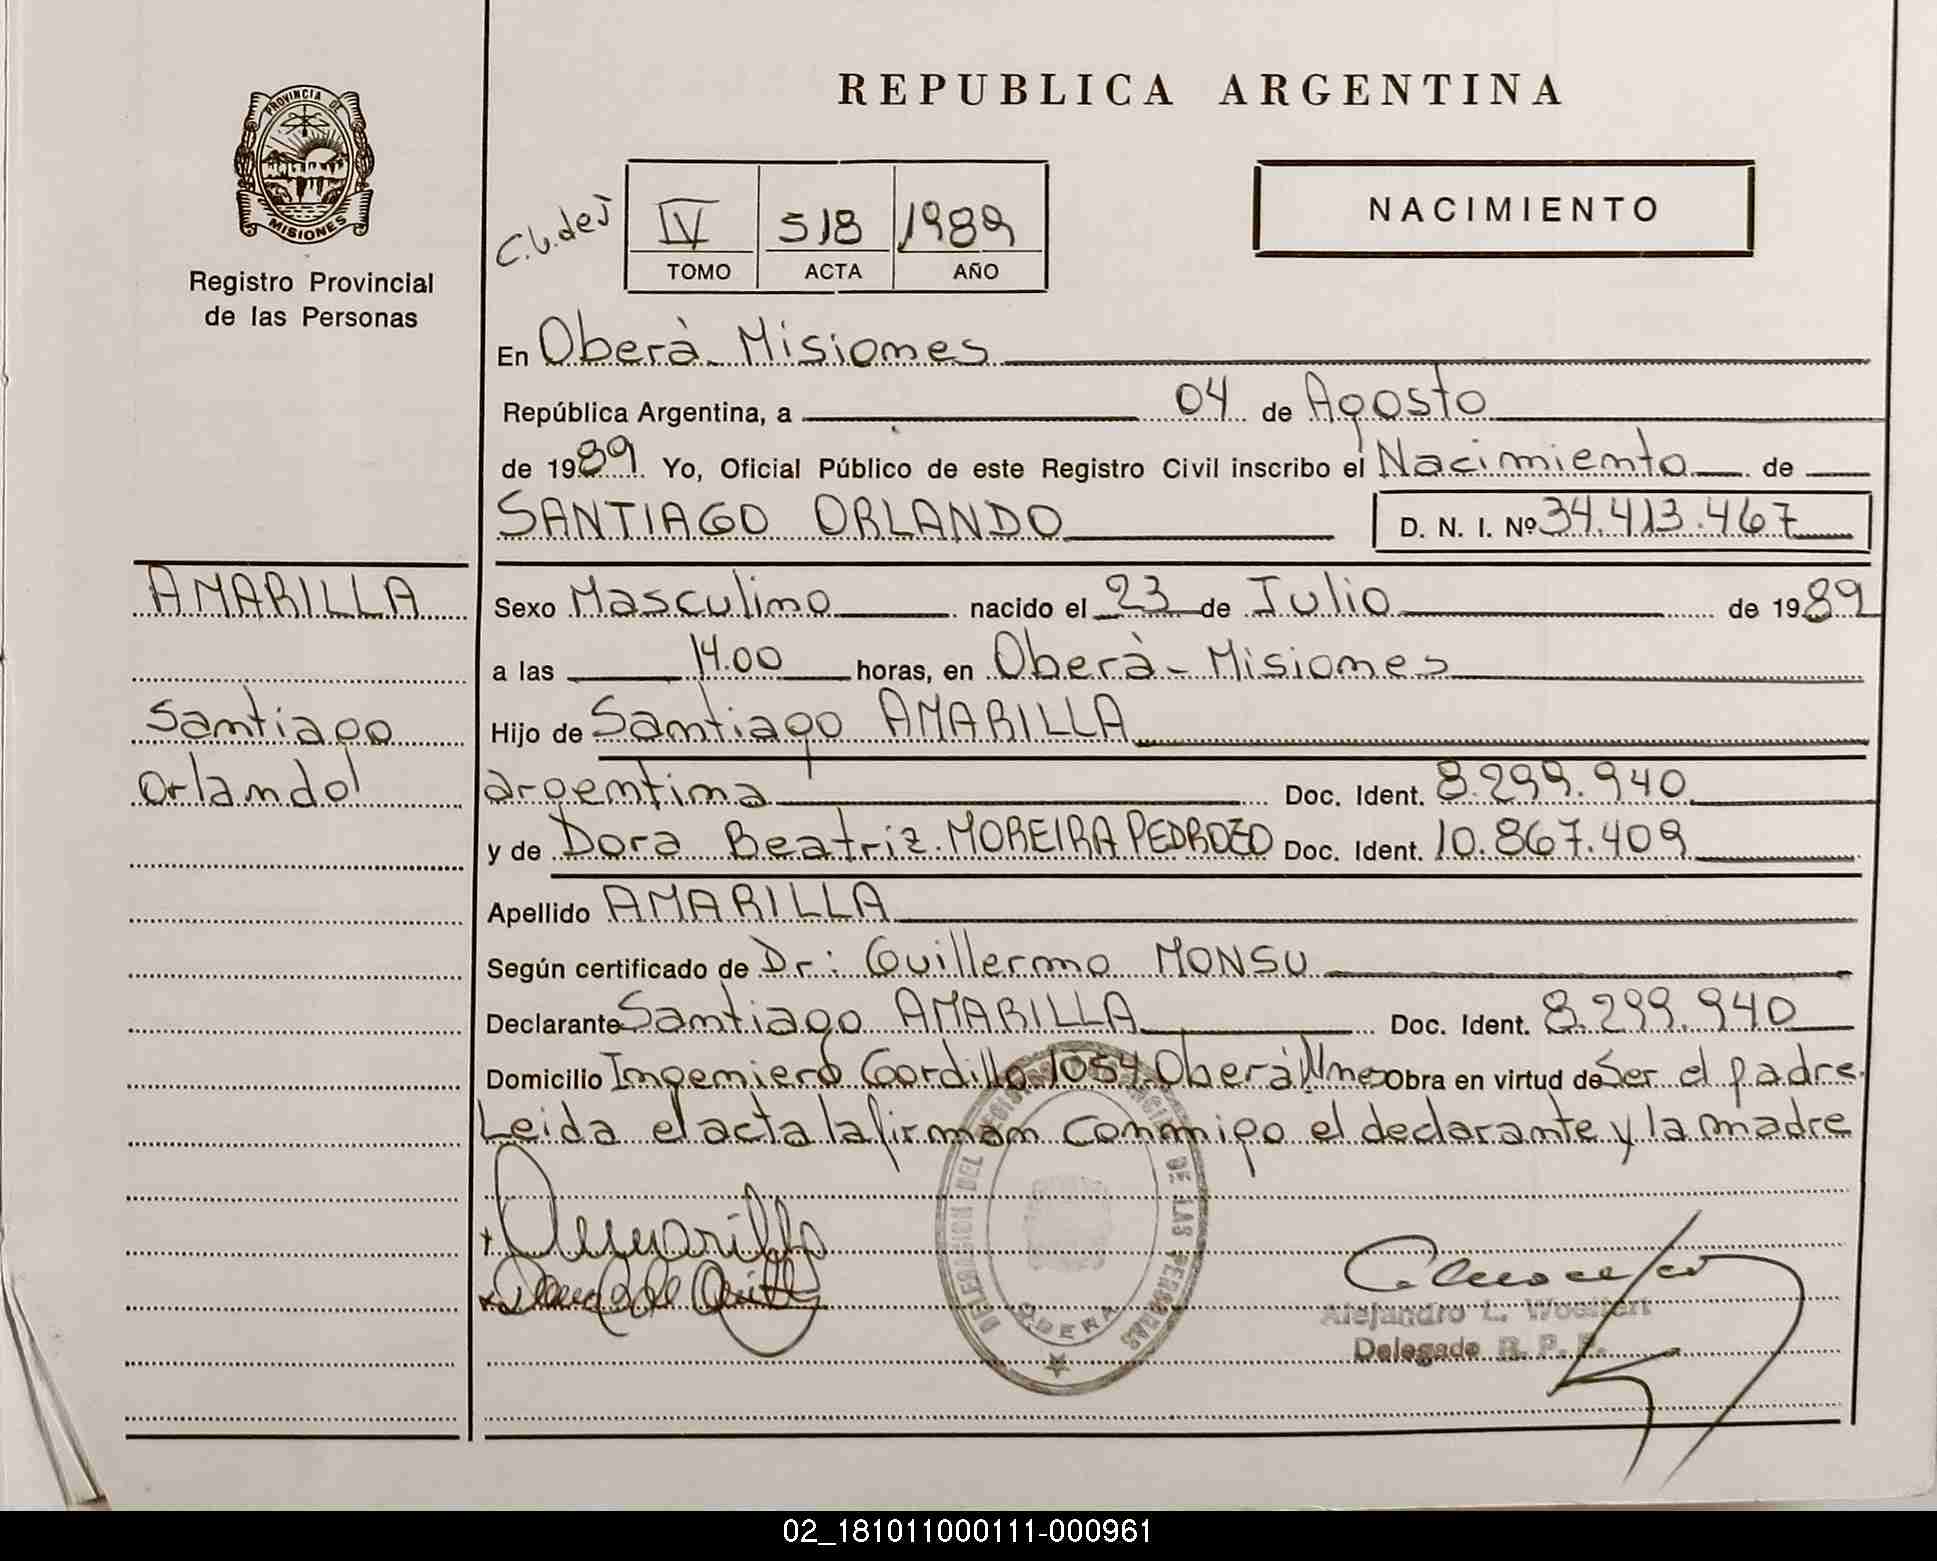 REPUBLICA ARGENTINA
PROVINCIA DE
MISIONES
Registro Provincial
de las Personas
IV 518 1989
TOMO ACTA AÑO
NACIMIENTO
En Oberà - Misiones
República Argentina, a 04 de Agosto
de 1989 Yo, Oficial Público de este Registro Civil inscribo el Nacimiento de
SANTIAGO ORLANDO D. N. I. Nº 34.413.467
AMARILLA
Santiago
Orlando
Sexo Masculino nacido el 23 de Julio de 1989
a las 14.00 horas, en Oberà - Misiones
Hijo de Santiago AMARILLA
argentina Doc. Ident. 8.299.940
y de Dora Beatriz MOREIRA PEDROZO Doc. Ident. 10.867.409
Apellido AMARILLA
Según certificado de Dr: Guillermo MONSU
Declarante Santiago AMARILLA Doc. Ident. 8.299.940
Domicilio Ingeniero Gordillo 1054 Oberá Mnes Obra en virtud de Ser el padre.
Leida el acta la firman conmigo el declarante y la madre
Amarilla
DELEGACION DEL REGISTRO PROVINCIAL DE LAS PERSONAS
OBERA
Alejandro L.
Delegado R. P. P.
02_181011000111-000961